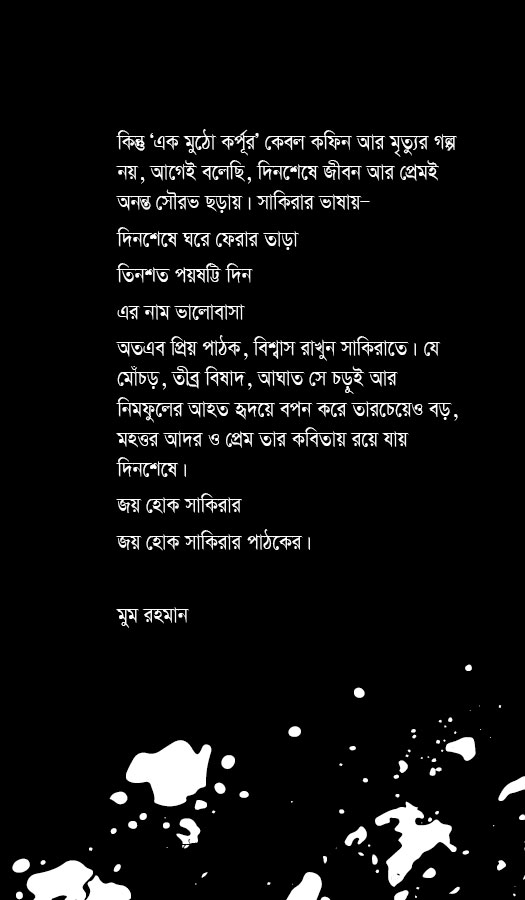 কিন্তু ‘এক মুঠো কর্পূর’ কেবল কফিন আর মৃত্যুর গল্প
নয়, আগেই বলেছি, দিনশেষে জীবন আর প্রেমই
অনন্ত সৌরভ ছড়ায়। সাকিরার ভাষায়–
দিনশেষে ঘরে ফেরার তাড়া
তিনশত পয়ষট্টি দিন
এর নাম ভালোবাসা
অতএব প্রিয় পাঠক, বিশ্বাস রাখুন সাকিরাতে। যে
মোঁচড়, তীব্র বিষাদ, আঘাত সে চড়ুই আর
নিমফুলের আহত হৃদয়ে বপন করে তারচেয়েও বড়,
মহত্তর আদর ও প্রেম তার কবিতায় রয়ে যায়
দিনশেষে।
জয় হোক সাকিরার
জয় হোক সাকিরার পাঠকের।
মুম রহমান